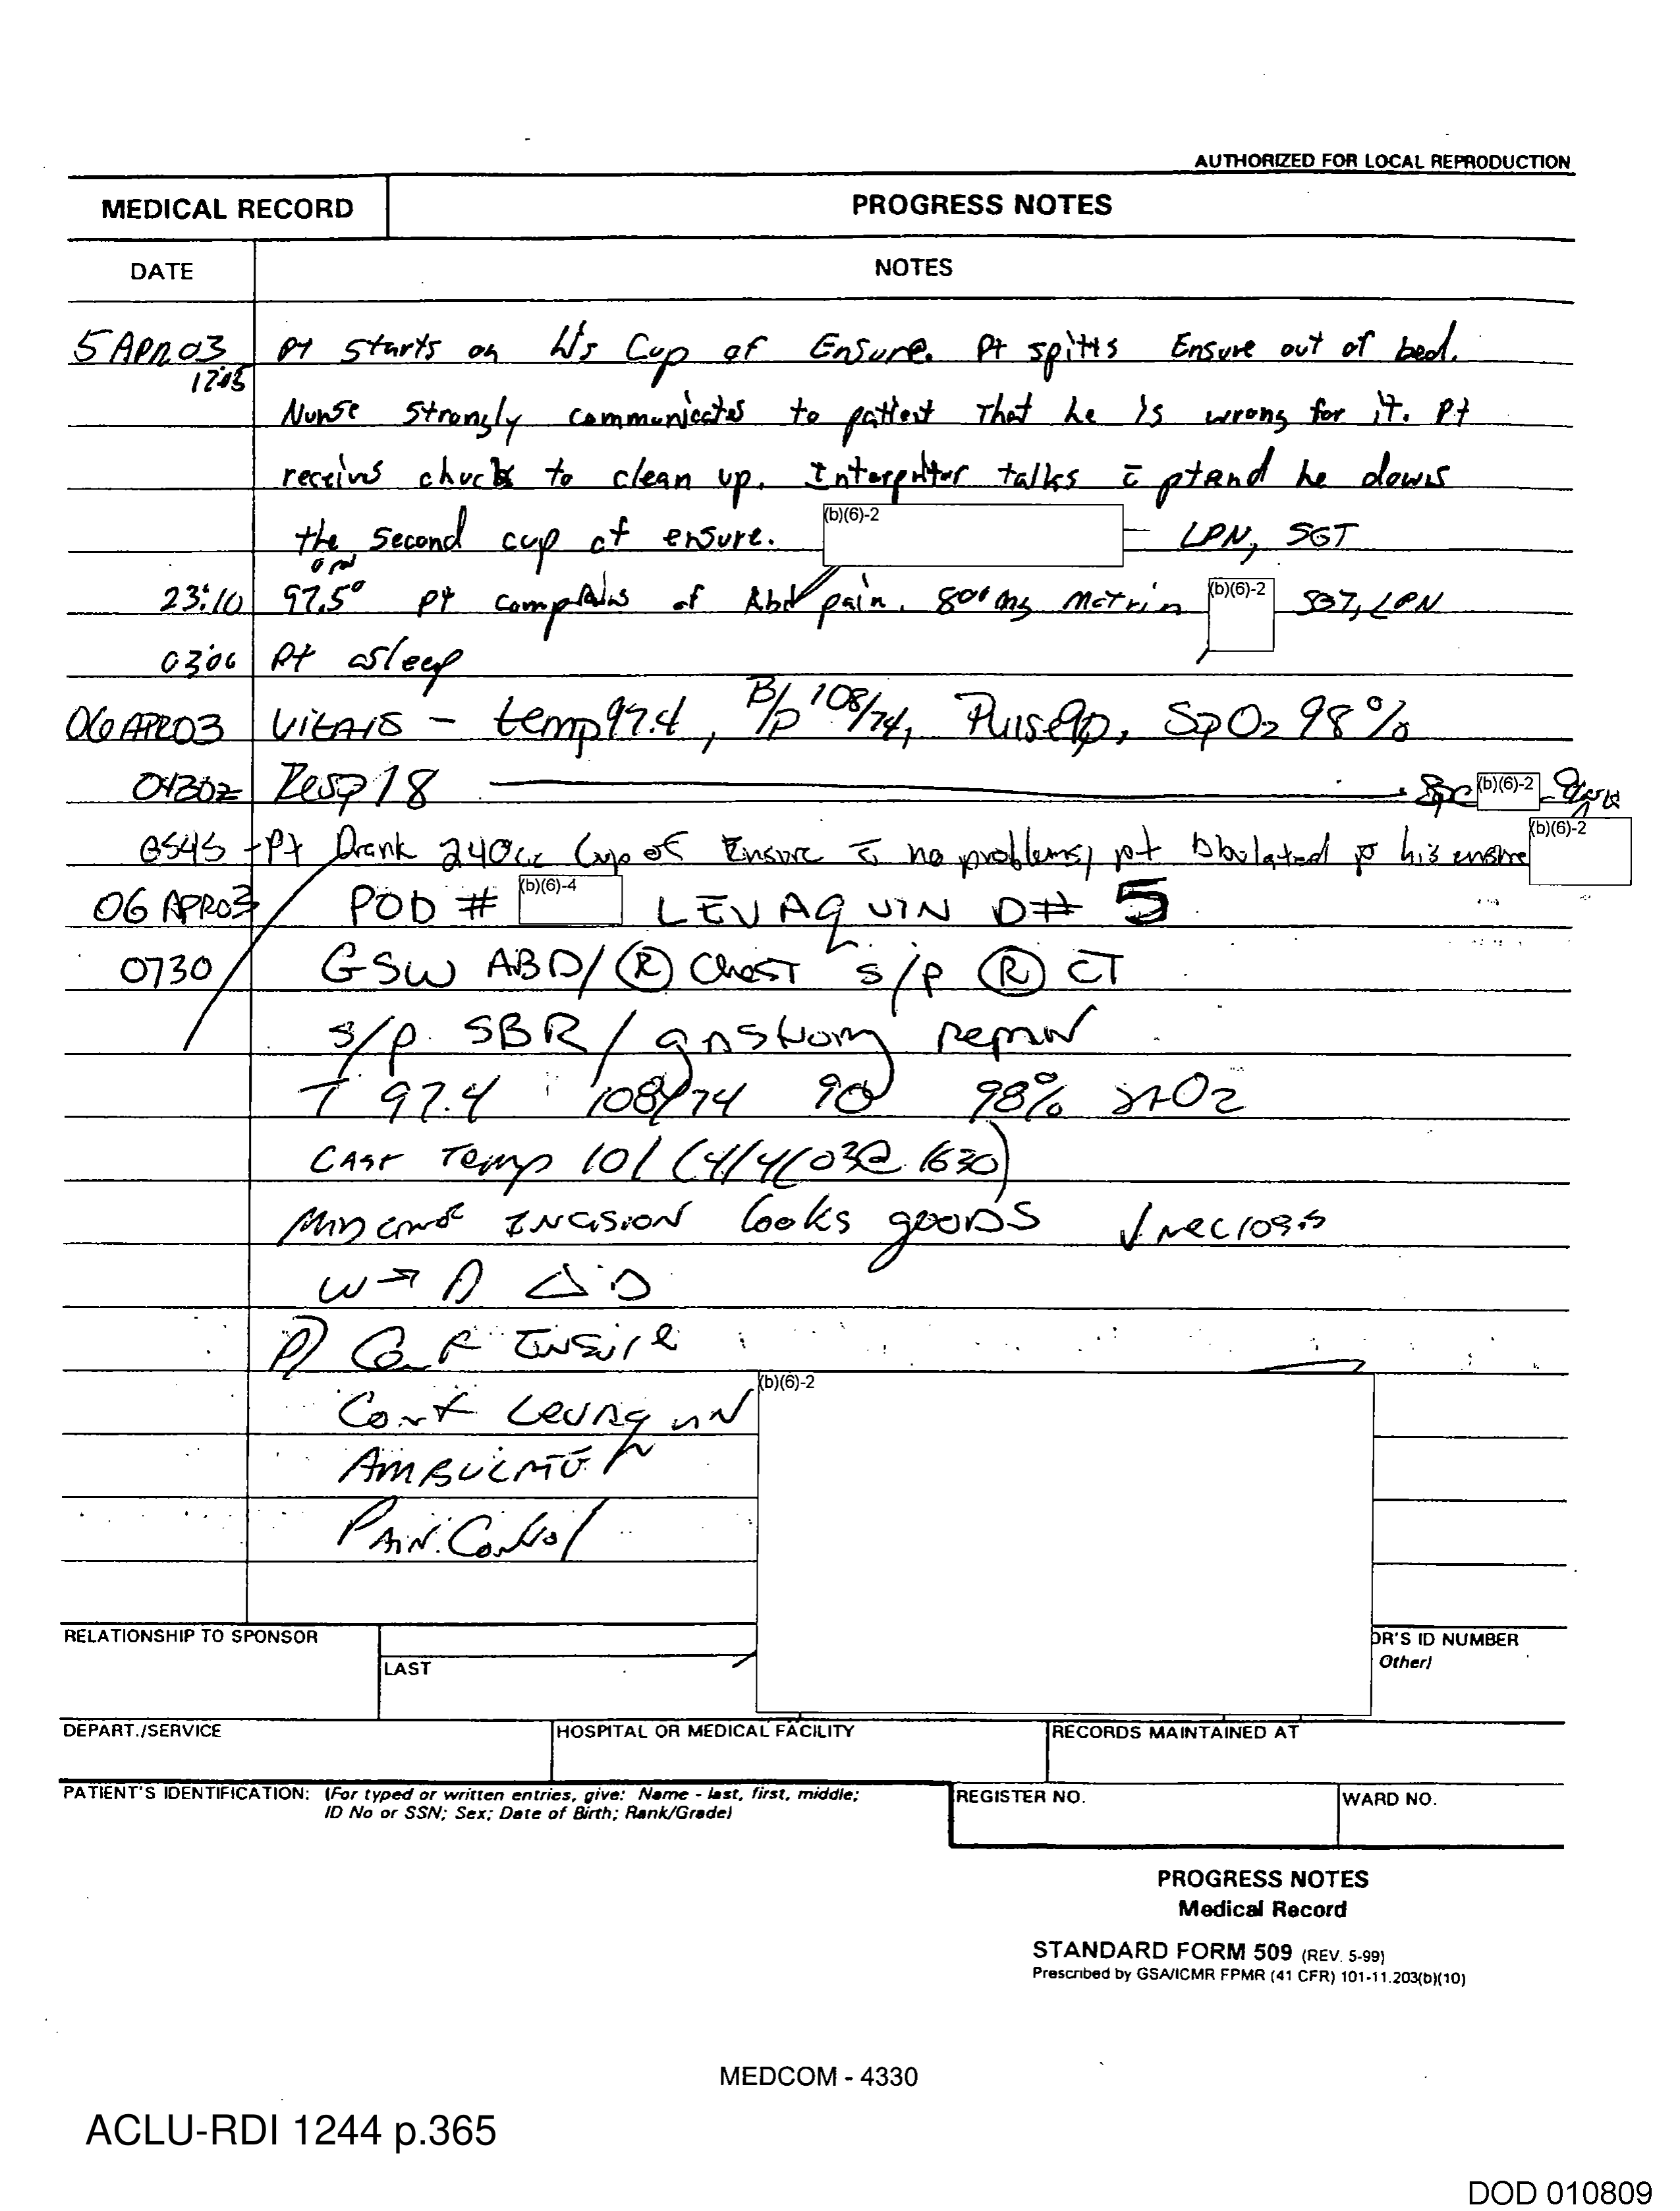 AUTHORIZED FOR LOCAL REPRODUCTION
MEDICAL RECORD PROGRESS NOTES
DATE NOTES
5 APR 03 Pt starts on his Cup of Ensure. Pt spitts Ensure out of bed.
1705
Nurse strongly communicates to patient that he is wrong for it. Pt
receives chucks to clean up. Interpritor talks c̄ pt and he downs
the second cup of ensure. (b)(6)-2 LPN, SGT
oral
23:10 97.5° pt complains of Abd pain. 800 mg Motrin (b)(6)-2 LPN
0300 Pt asleep
06 APR 03 VITALS - temp 97.4, B/P 108/74, Pulse 90, SpO2 98%
0430z Resp 18 Spc (b)(6)-2
0545 - Pt Drank 240cc Cup of Ensure c̄ no problems, pt his ensure (b)(6)-2
06 APR 03 POD # (b)(6)-4 LEVAQUIN D# 5
0730 GSW ABD/ Ⓡ Chest s/p Ⓡ CT
s/p SBR/ repair
T 97.4 108/74 90 98% O2
Last Temp 101 (4/4/03 @ 1630)
INCISION looks good
W → D Δ'D
P) Cont Ensure
(b)(6)-2
Cont Levaquin
AMBULATE
PAIN Control
RELATIONSHIP TO SPONSOR
LAST
OR'S ID NUMBER
Other)
DEPART./SERVICE HOSPITAL OR MEDICAL FACILITY RECORDS MAINTAINED AT
PATIENT'S IDENTIFICATION: (For typed or written entries, give: Name - last, first, middle;
ID No or SSN; Sex; Date of Birth; Rank/Grade)
REGISTER NO. WARD NO.
PROGRESS NOTES
Medical Record
STANDARD FORM 509 (REV. 5-99)
Prescribed by GSA/ICMR FPMR (41 CFR) 101-11.203(b)(10)
MEDCOM - 4330
ACLU-RDI 1244 p.365
DOD 010809